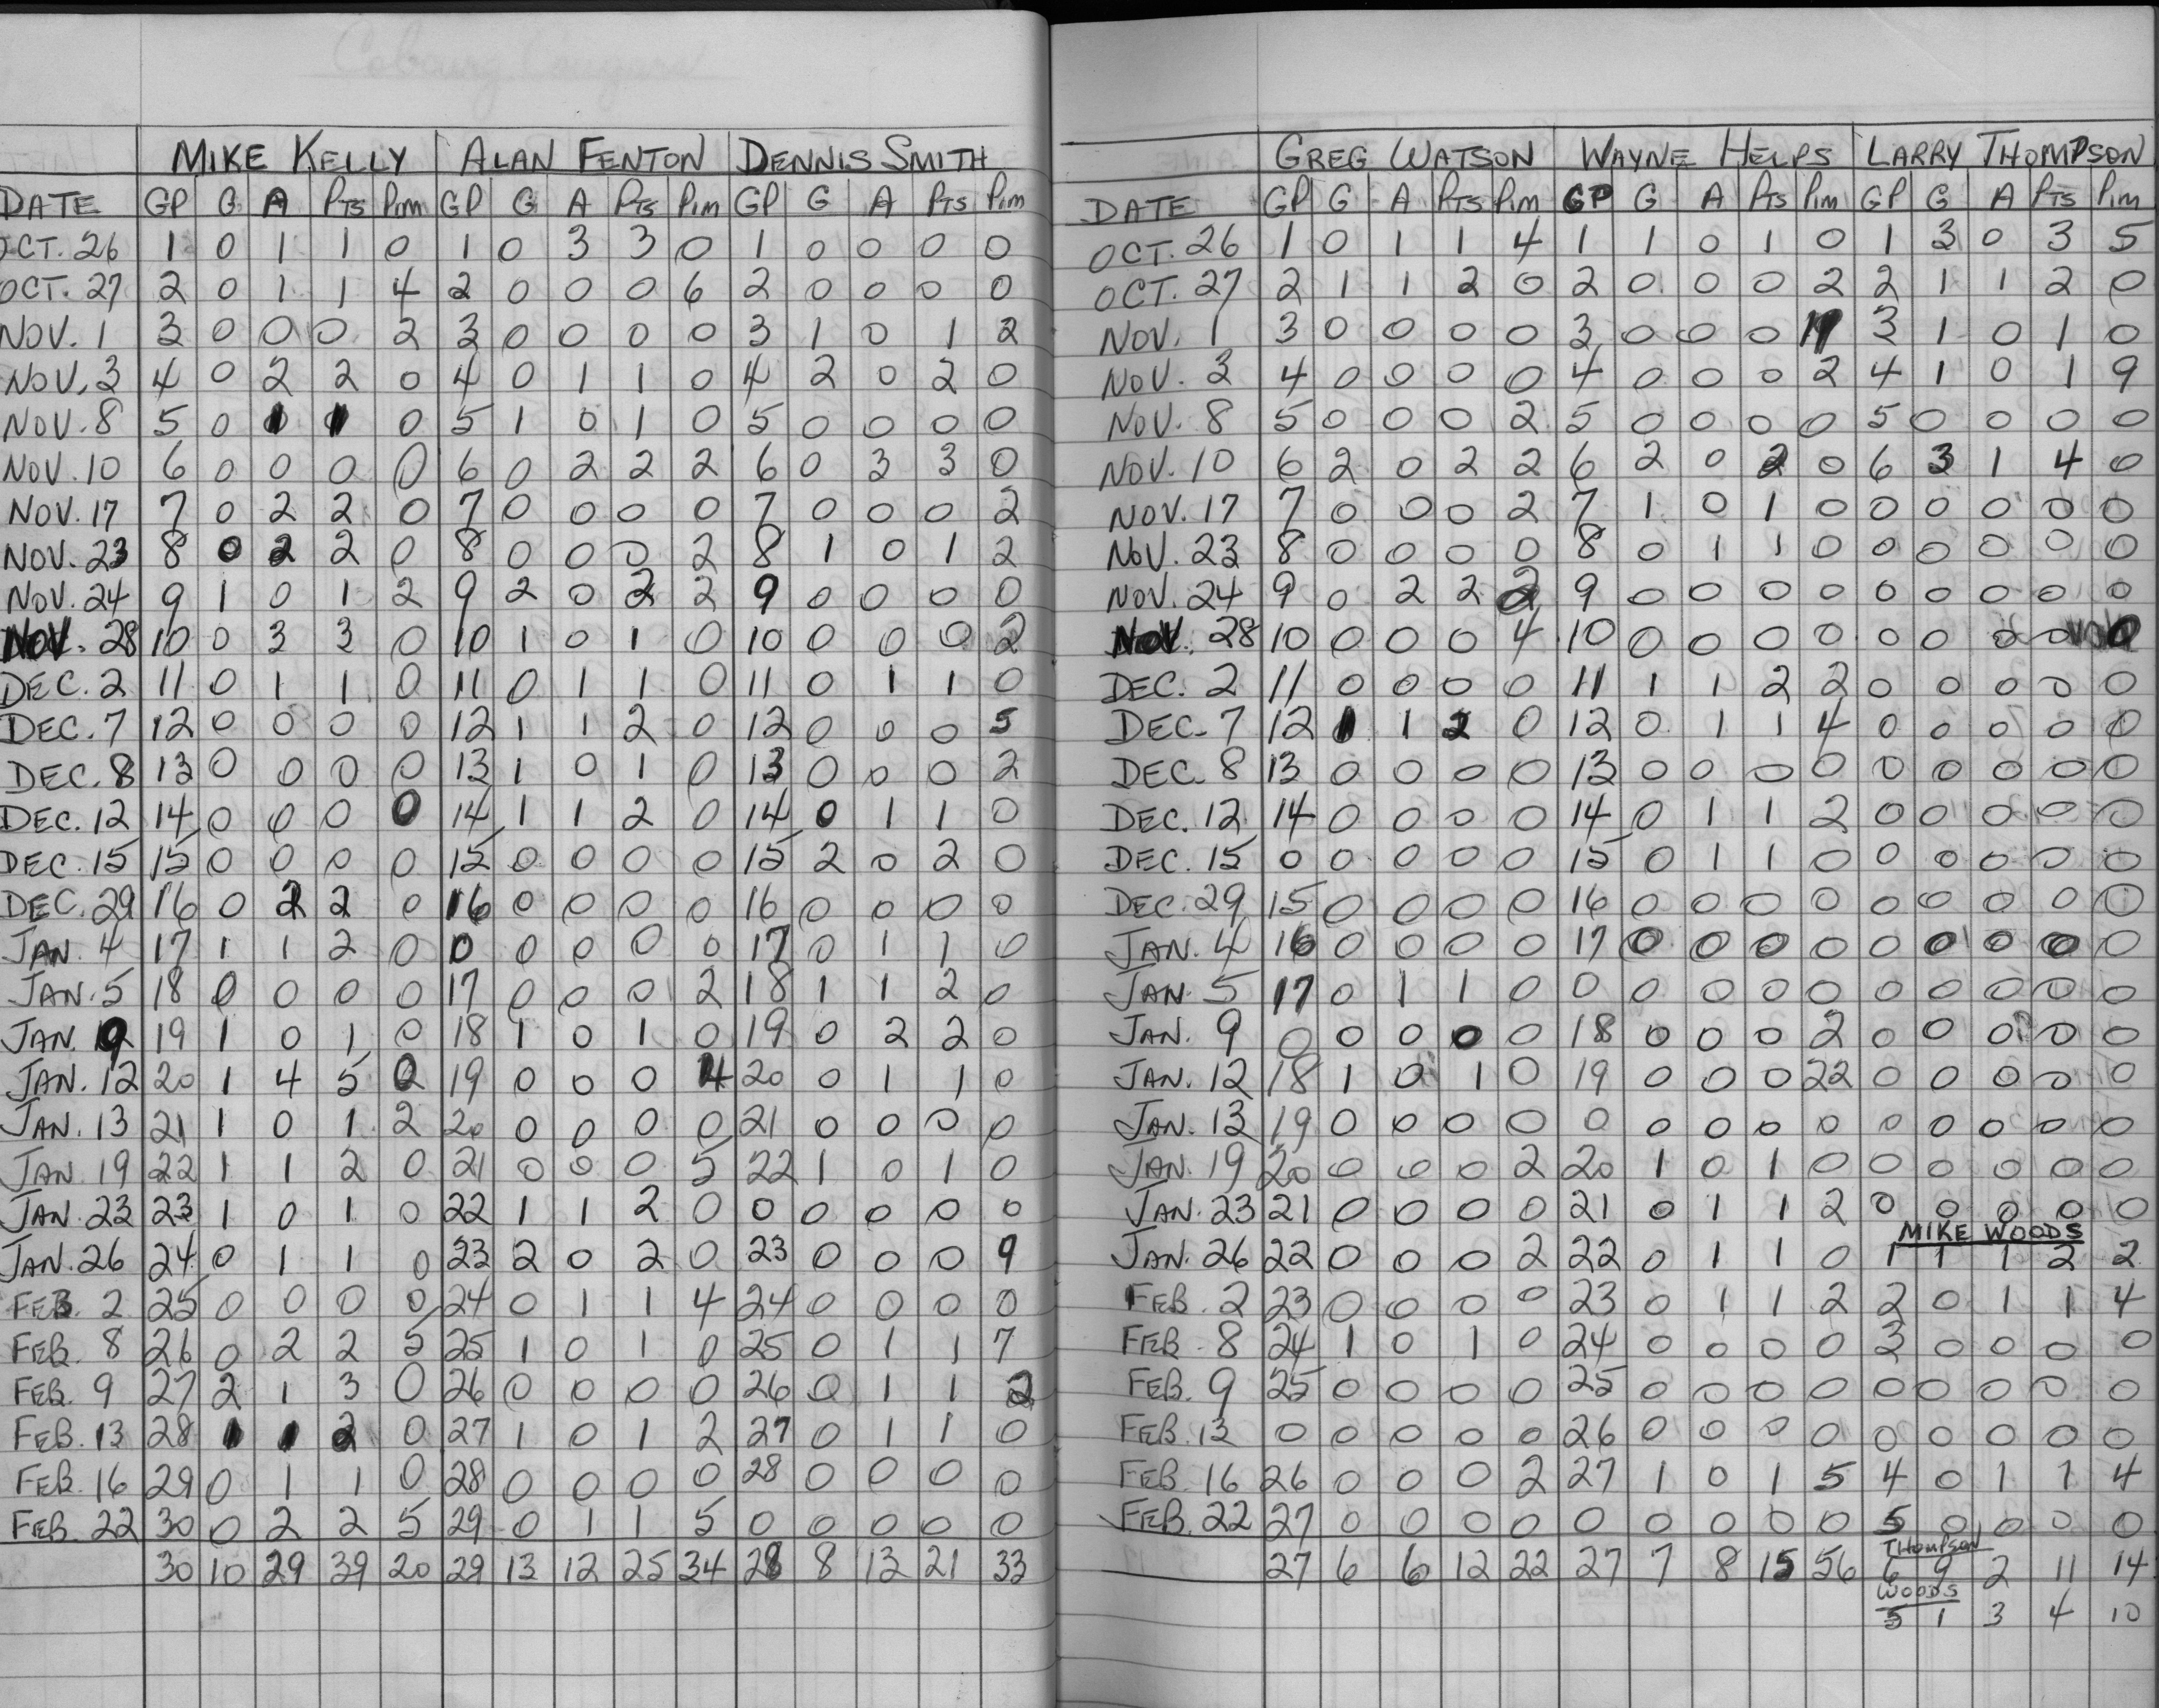 Cobourg Cougars
MIKE KELLY ALAN FENTON DENNIS SMITH
DATE GP G A PTS Pim GP G A PTS Pim GP G A PTS Pim
OCT. 26 1 0 1 1 0 1 0 3 3 0 1 0 0 0 0
OCT. 27 2 0 1 1 4 2 0 0 0 6 2 0 0 0 0
NOV. 1 3 0 0 0 2 3 0 0 0 0 3 1 0 1 2
NOV. 3 4 0 2 2 0 4 0 1 1 0 4 2 0 2 0
NOV. 8 5 0 1 1 0 5 1 0 1 0 5 0 0 0 0
NOV. 10 6 0 0 0 0 6 0 2 2 2 6 0 3 3 0
NOV. 17 7 0 2 2 0 7 0 0 0 0 7 0 0 0 2
NOV. 23 8 0 2 2 0 8 0 0 0 2 8 1 0 1 2
NOV. 24 9 1 0 1 2 9 2 0 2 2 9 0 0 0 0
NOV. 28 10 0 3 3 0 10 1 0 1 0 10 0 0 0 2
DEC. 2 11 0 1 1 0 11 0 1 1 0 11 0 1 1 0
DEC. 7 12 0 0 0 0 12 1 1 2 0 12 0 0 0 5
DEC. 8 13 0 0 0 0 13 1 0 1 0 13 0 0 0 2
DEC. 12 14 0 0 0 0 14 1 1 2 0 14 0 1 1 0
DEC. 15 15 0 0 0 0 15 0 0 0 0 15 2 0 2 0
DEC. 29 16 0 2 2 0 16 0 0 0 0 16 0 0 0 0
JAN. 4 17 1 1 2 0 0 0 0 0 0 17 0 1 1 0
JAN. 5 18 0 0 0 0 17 0 0 0 2 18 1 1 2 0
JAN. 9 19 1 0 1 0 18 1 0 1 0 19 0 2 2 0
JAN. 12 20 1 4 5 0 19 0 0 0 4 20 0 1 1 0
JAN. 13 21 1 0 1 2 20 0 0 0 0 21 0 0 0 0
JAN. 19 22 1 1 2 0 21 0 0 0 5 22 1 0 1 0
JAN. 23 23 1 0 1 0 22 1 1 2 0 0 0 0 0 0
JAN. 26 24 0 1 1 0 23 2 0 2 0 23 0 0 0 9
FEB. 2 25 0 0 0 0 24 0 1 1 4 24 0 0 0 0
FEB. 8 26 0 2 2 5 25 1 0 1 0 25 0 1 1 7
FEB. 9 27 2 1 3 0 26 0 0 0 0 26 0 1 1 2
FEB. 13 28 1 1 2 0 27 1 0 1 2 27 0 1 1 0
FEB. 16 29 0 1 1 0 28 0 0 0 0 28 0 0 0 0
FEB. 22 30 0 2 2 5 29 0 1 1 5 0 0 0 0 0
30 10 29 39 20 29 13 12 25 34 28 8 13 21 33
GREG WATSON WAYNE HELPS LARRY THOMPSON
DATE GP G A PTS Pim GP G A PTS Pim GP G A PTS Pim
OCT. 26 1 0 1 1 4 1 1 0 1 0 1 3 0 3 5
OCT. 27 2 1 1 2 0 2 0 0 0 2 2 1 1 2 0
NOV. 1 3 0 0 0 0 3 0 0 0 3 1 0 1 0
NOV. 3 4 0 0 0 0 4 0 0 0 2 4 1 0 1 9
NOV. 8 5 0 0 0 2 5 0 0 0 0 5 0 0 0 0
NOV. 10 6 2 0 2 2 6 2 0 2 0 6 3 1 4 0
NOV. 17 7 0 0 0 2 7 1 0 1 0 0 0 0 0 0
NOV. 23 8 0 0 0 0 8 0 1 1 0 0 0 0 0 0
NOV. 24 9 0 2 2 2 9 0 0 0 0 0 0 0 0 0
NOV. 28 10 0 0 0 4 10 0 0 0 0 0 0 0 0 0
DEC. 2 11 0 0 0 0 11 1 1 2 2 0 0 0 0 0
DEC. 7 12 1 1 2 0 12 0 1 1 4 0 0 0 0 0
DEC. 8 13 0 0 0 0 13 0 0 0 0 0 0 0 0 0
DEC. 12 14 0 0 0 0 14 0 1 1 2 0 0 0 0 0
DEC. 15 0 0 0 0 0 15 0 1 1 0 0 0 0 0 0
DEC. 29 15 0 0 0 0 16 0 0 0 0 0 0 0 0 0
JAN. 4 16 0 0 0 0 17 0 0 0 0 0 0 0 0 0
JAN. 5 17 0 1 1 0 0 0 0 0 0 0 0 0 0 0
JAN. 9 0 0 0 0 0 18 0 0 0 2 0 0 0 0 0
JAN. 12 18 1 0 1 0 19 0 0 0 22 0 0 0 0 0
JAN. 13 19 0 0 0 0 0 0 0 0 0 0 0 0 0 0
JAN. 19 20 0 0 0 2 20 1 0 1 0 0 0 0 0 0
JAN. 23 21 0 0 0 0 21 0 1 1 2 0 0 0 0 0
MIKE WOODS
JAN. 26 22 0 0 0 2 22 0 1 1 0 1 1 1 2 2
FEB. 2 23 0 0 0 0 23 0 1 1 2 2 0 1 1 4
FEB. 8 24 1 0 1 0 24 0 0 0 0 3 0 0 0 0
FEB. 9 25 0 0 0 0 25 0 0 0 0 0 0 0 0 0
FEB. 13 0 0 0 0 0 26 0 0 0 0 0 0 0 0 0
FEB. 16 26 0 0 0 2 27 1 0 1 5 4 0 1 1 4
FEB. 22 27 0 0 0 0 0 0 0 0 0 5 0 0 0 0
THOMPSON
27 6 6 12 22 27 7 8 15 56 6 9 2 11 14
WOODS
5 1 3 4 10